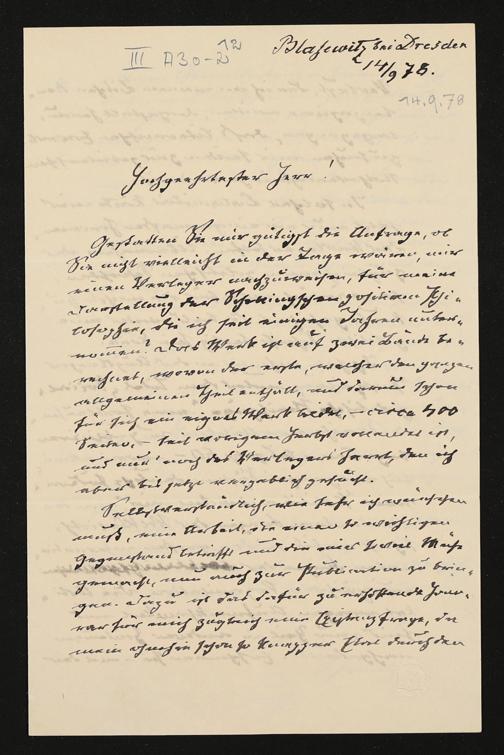 III A30-2 12
Blasewitz bei Dresden
14/9 78.
14.9.78
Hochgeehrtester Herr!
Gestatten Sie mir gütigst die Anfrage, ob
Sie nicht vielleicht in der Lage wären, mir
einen Verleger nachzuweisen, für meine
Darstellung der Schellingschen positiven Phi-
losophie, die ich seit einigen Jahren unter-
nommen? Das Werk ist auf zwei Bände be-
rechnet, wovon der erste, welcher den ganzen
allgemeinen Theil enthält, und daraus schon
für sich ein eignes Werk bildet, – circa 400
Seiten, – seit vorigem Herbst vollendet ist,
und nur noch des Verlegers harrt, den ich
aber bis jetzt vergeblich gesucht.
Selbstverständlich, wie sehr ich wünschen
muß, eine Arbeit, die einen so wichtigen
Gegenstand betrifft und die mir so viel Mühe
gemacht, nun auch zur Publication zu brin-
gen. Dazu ist das dafür zu erhoffende Hono-
rar für mich zugleich eine Existenzfrage, da
mein ohnehin schon so knapper Etat durch den